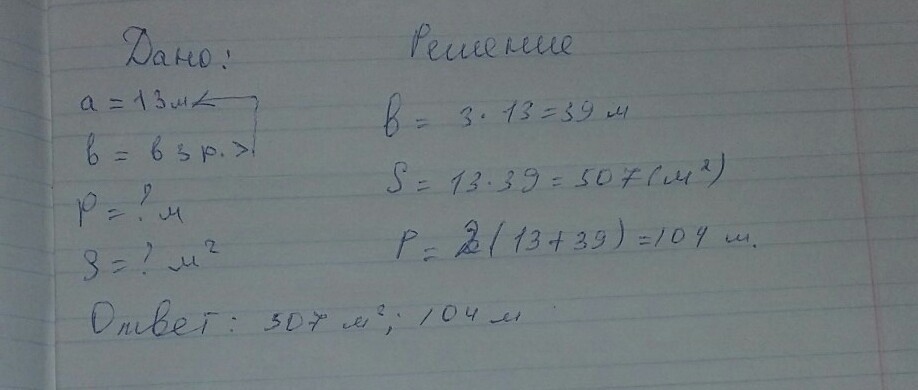 Дано:
a = 13 м
b = в 3 р. >
P = ? м
S = ? м²
Решение
b = 3 · 13 = 39 м
S = 13 · 39 = 507 (м²)
P = 2 (13 + 39) = 104 м.
Ответ: 507 м²; 104 м